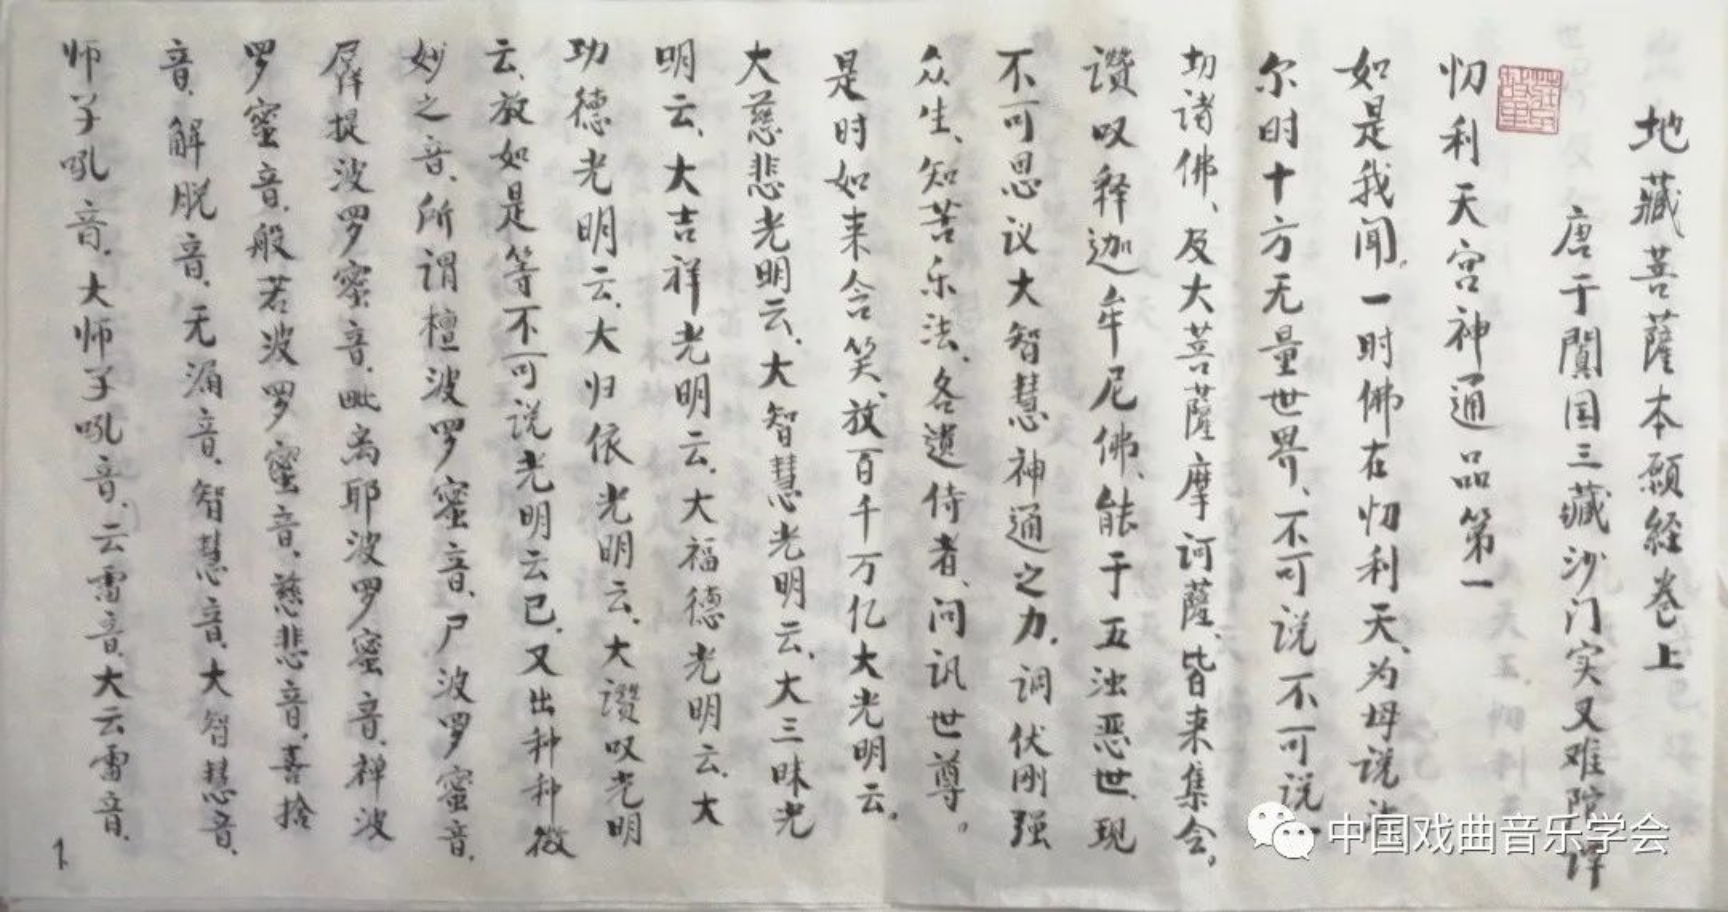 地藏菩萨本願经卷上
唐于闐国三藏沙门实叉难陀译
忉利天宫神通品第一
如是我闻，一时佛在忉利天、为母说法
尔时十方无量世界、不可说不可说一
切诸佛、及大菩萨摩诃萨、皆来集会，
讚叹释迦牟尼佛、能于五浊恶世、现
不可思议大智慧神通之力，调伏刚强
众生、知苦乐法、各遣侍者、问讯世尊。
是时如来含笑、放百千万亿大光明云。
大慈悲光明云、大智慧光明云、大三昧光
明云、大吉祥光明云、大福德光明云、大
功德光明云、大归依光明云、大讚叹光明
云、放如是等不可说光明云已，又出种种微
妙之音、所谓檀波罗蜜音、尸波罗蜜音、
羼提波罗蜜音、毗离耶波罗蜜音、禅波
罗蜜音、般若波罗蜜音、慈悲音、喜捨
音、解脱音、无漏音、智慧音、大智慧音、
师子吼音、大师子吼音、云雷音、大云雷音、
1
中国戏曲音乐学会